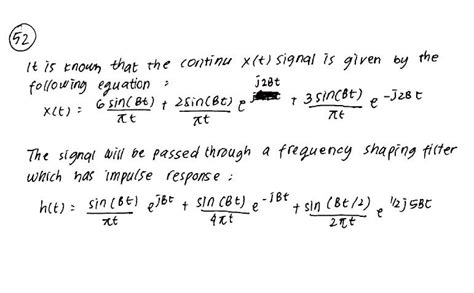 52
It is known that the continu x(t) signal is given by the
following equation :
x(t) = 6 sin(Bt)/πt + 2 sin(Bt)/πt e^j2Bt + 3 sin(Bt)/πt e^-j2Bt
The signal will be passed through a frequency shaping filter
which has impulse response :
h(t) = sin(Bt)/πt e^jBt + sin(Bt)/4πt e^-jBt + sin(Bt/2)/2πt e^1/2j5Bt